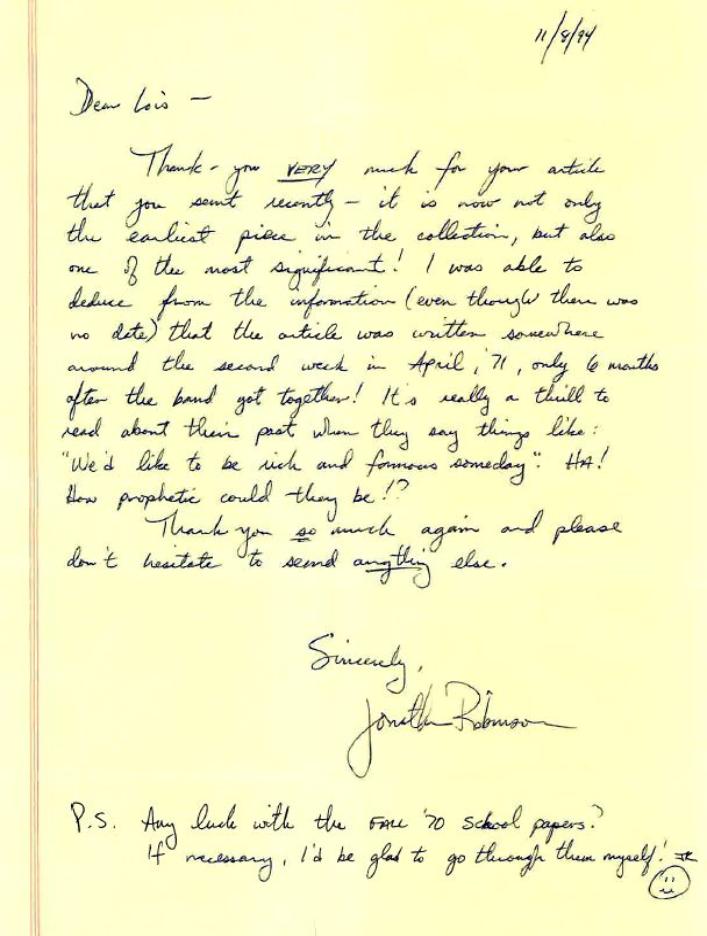 11/8/94
Dear Lois –
Thank-you VERY much for your article
that you sent recently – it is now not only
the earliest piece in the collection, but also
one of the most significant! I was able to
deduce from the information (even though there was
no date) that the article was written somewhere
around the second week in April, '71, only 6 months
after the band got together! It's really a thrill to
read about their past when they say things like:
"We'd like to be rich and famous someday". HA!
How prophetic could they be!?
Thank you so much again and please
don't hesitate to send anything else.
Sincerely,
Jonathan Robinson
P.S. Any luck with the FALL '70 school papers?
If necessary, I'd be glad to go through them myself! JR